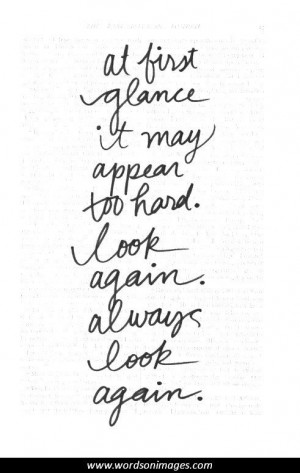 at first
glance
it may
appear
too hard.
look
again.
always
look
again.
www.wordsonimages.com